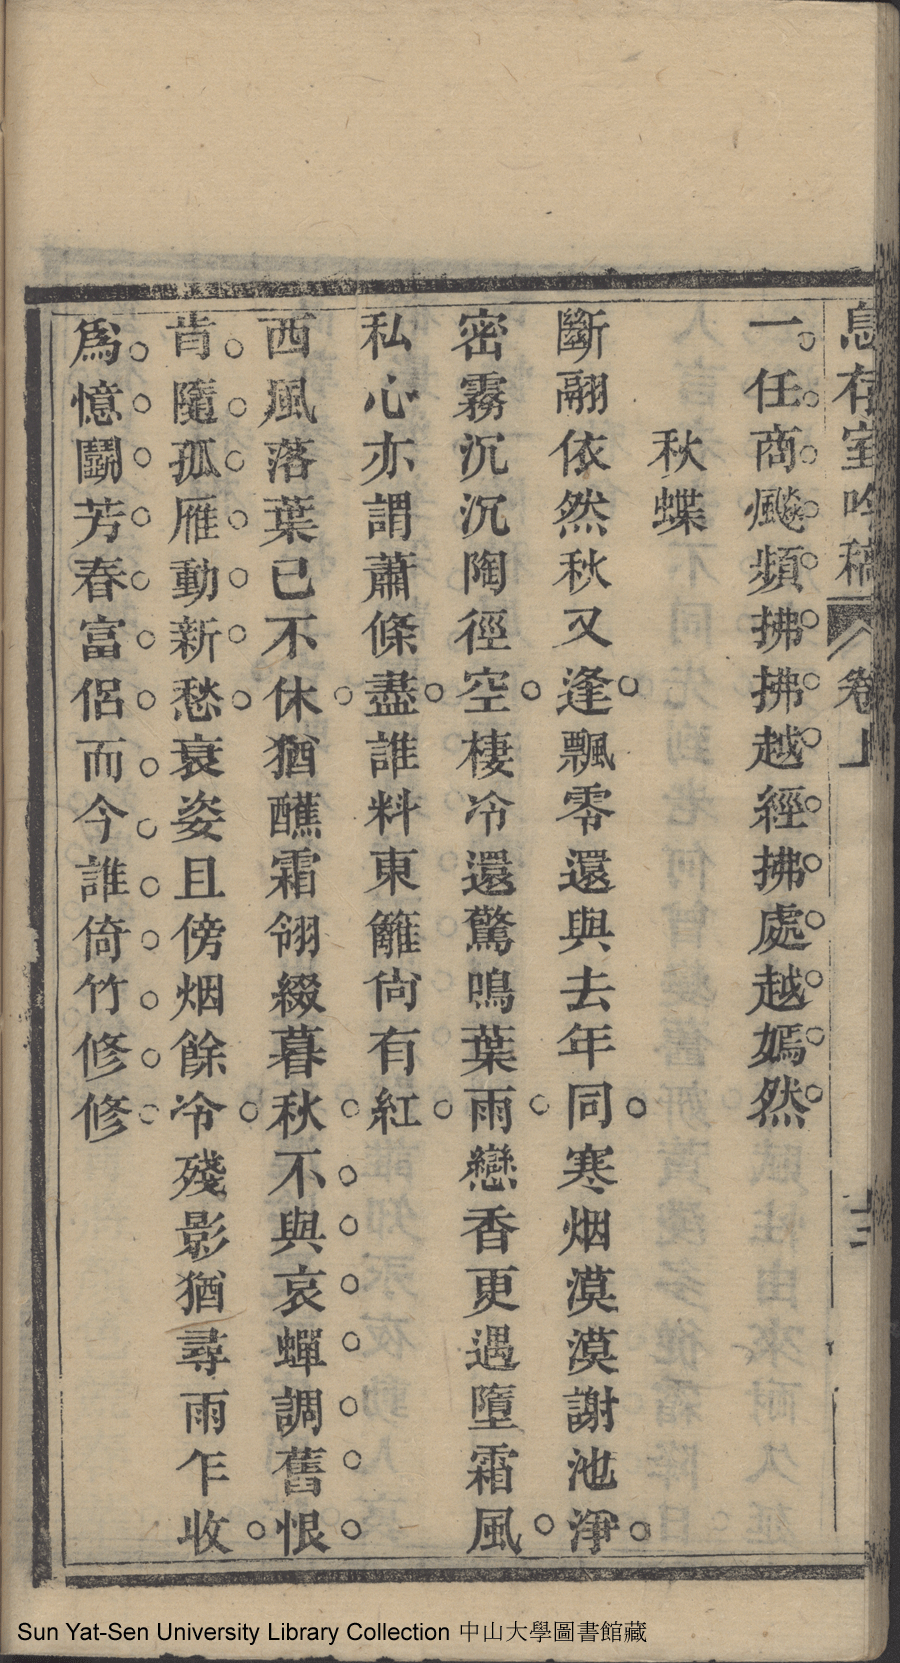 息存室吟稿 卷上 十二
一任商颷頻拂拂越經拂處越嫣然
秋蝶
斷翮依然秋又逢飄零還與去年同寒烟漠漠謝池淨
密霧沉沉陶徑空棲冷還驚鳴葉雨戀香更遇墮霜風
私心亦謂蕭條盡誰料東籬尙有紅
西風落葉已不休猶醮霜翎綴暮秋不與哀蟬調舊恨
肯隨孤雁動新愁衰姿且傍烟餘冷殘影猶尋雨乍收
爲憶鬬芳春富侶而今誰倚竹修修
Sun Yat-Sen University Library Collection 中山大學圖書館藏